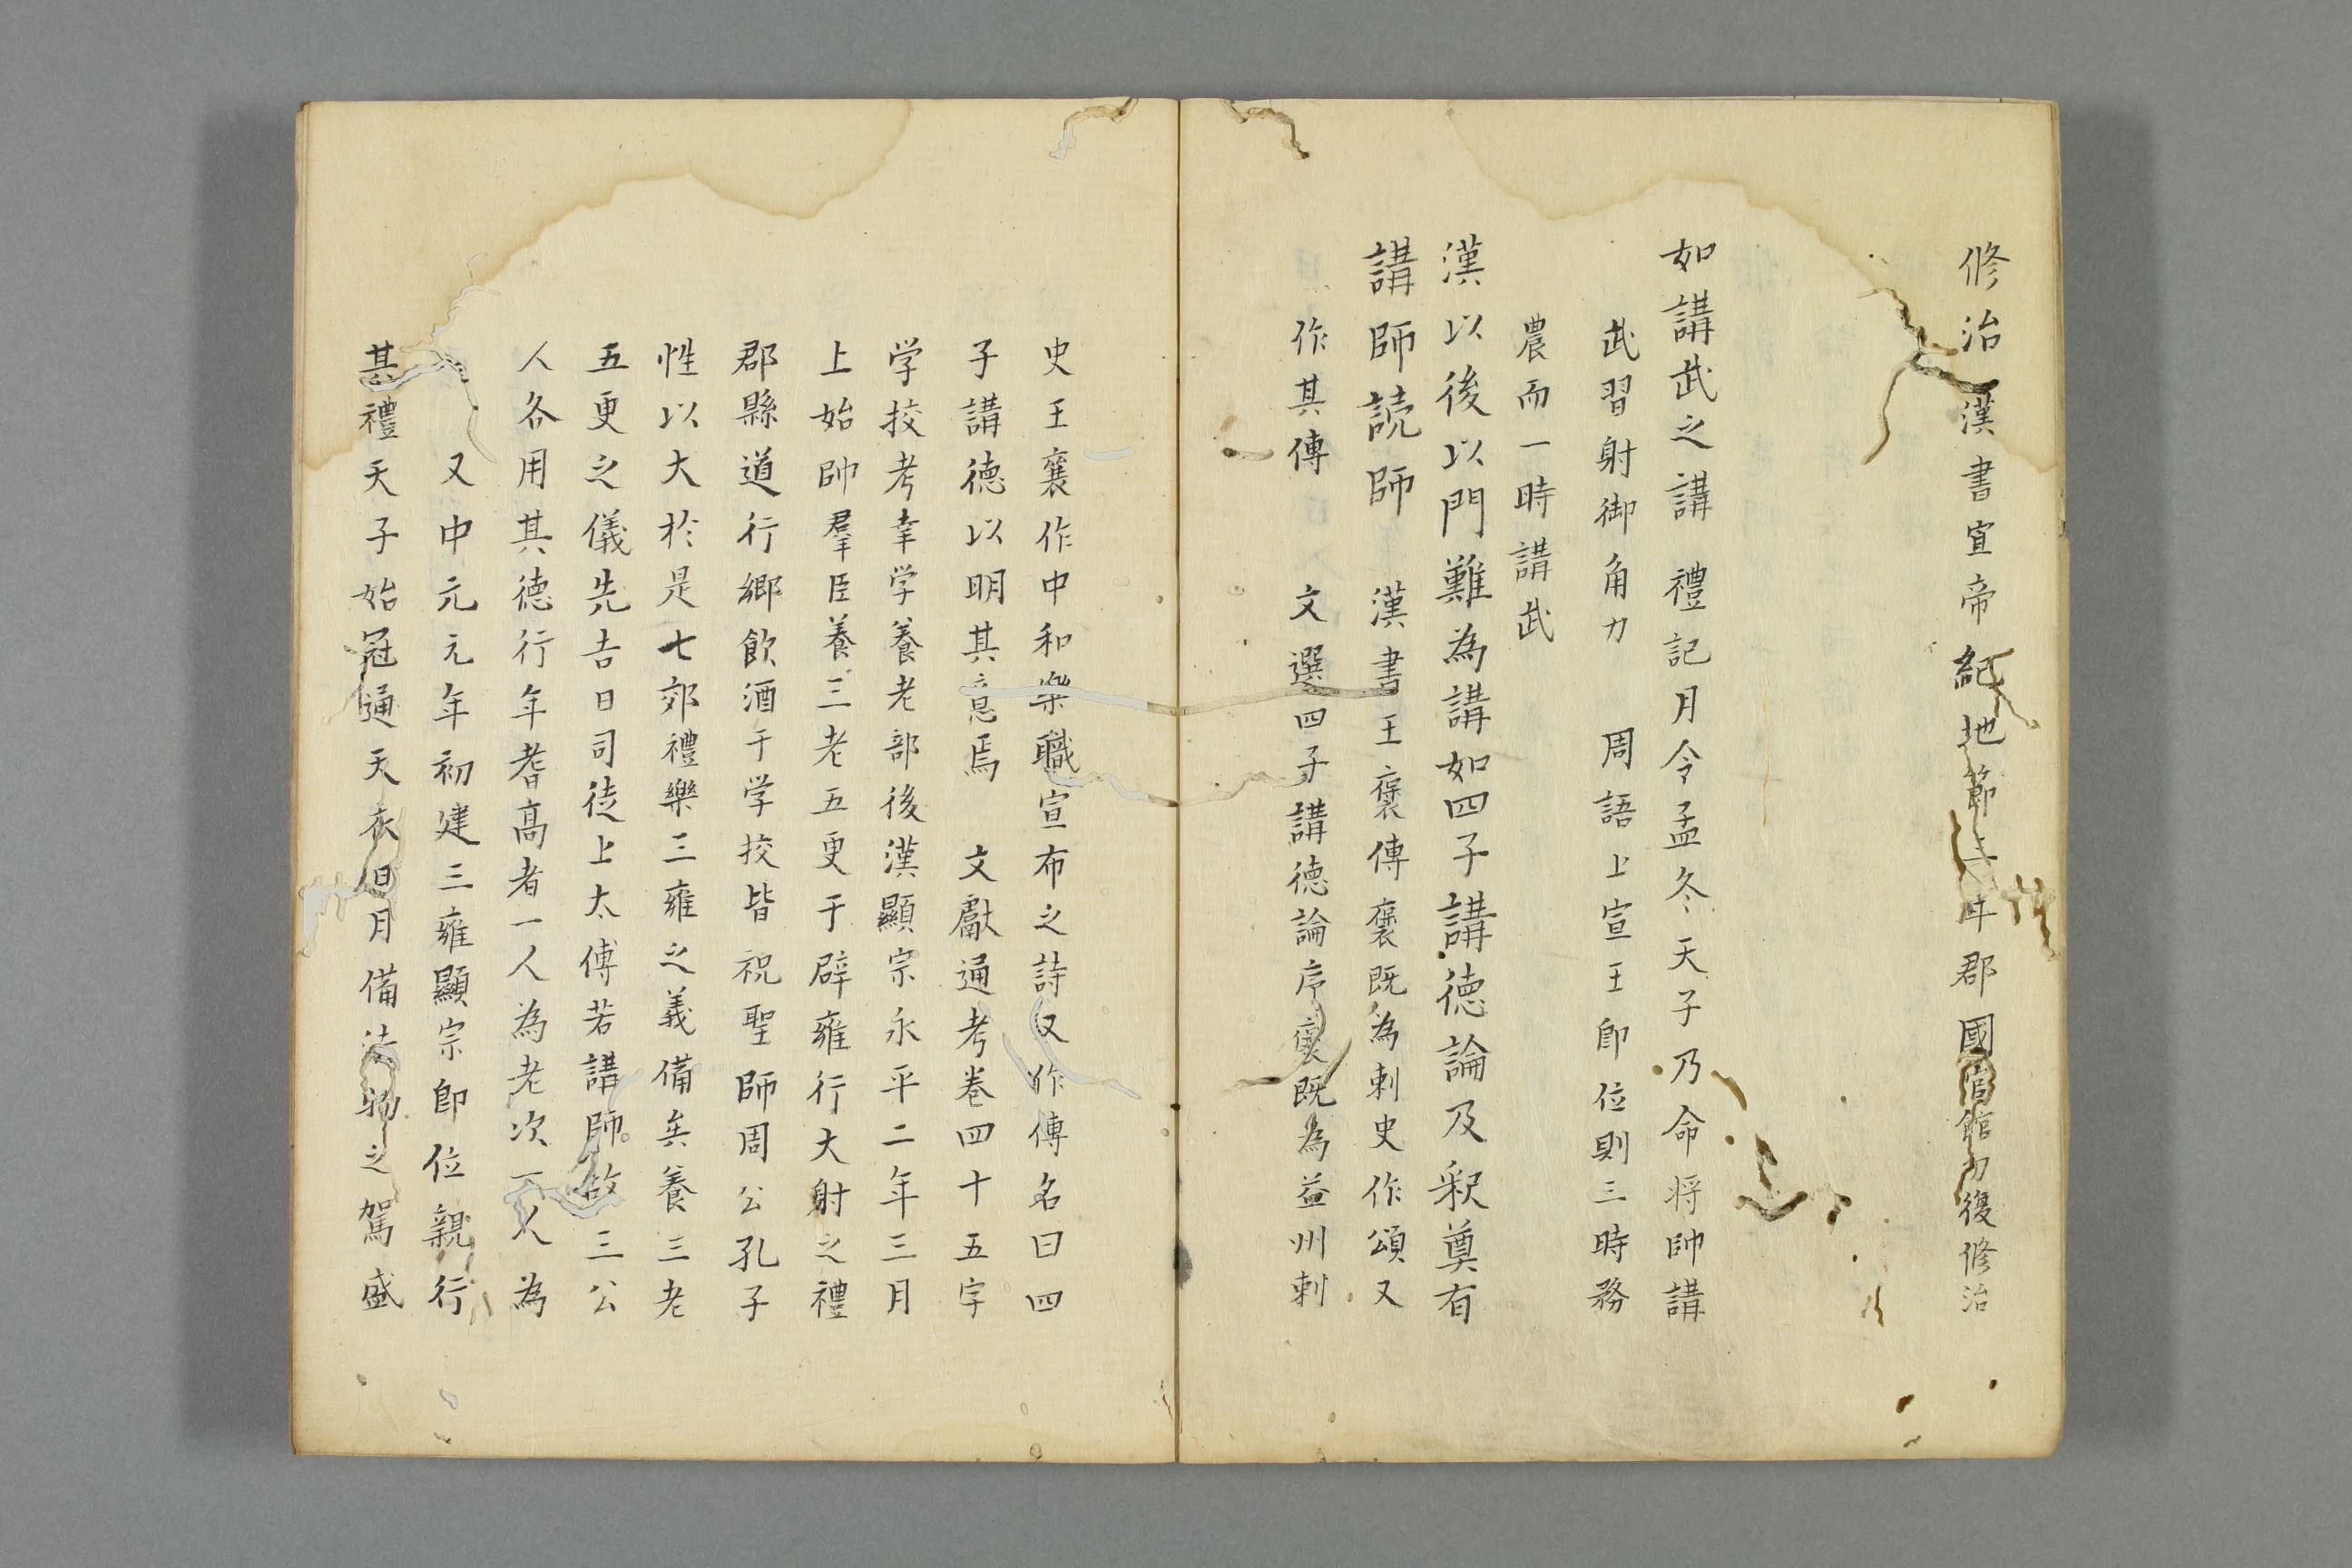 修治 漢書宣帝紀地節三年郡國宮館勿復修治
如講武之講 禮記月令孟冬天子乃命将帥講
武習射御角力 周語上宣王即位則三時務
農而一時講武
漢以後以問難為講如四子講徳論及釈奠有
講師読師 漢書王襃傳襃既為刺史作頌又
作其傳 文選四子講徳論序襃既為益州刺
史王襄作中和樂職宣布之詩又作傳名曰四
子講徳以明其意焉 文獻通考巻四十五字
学挍考幸学養老部後漢顯宗永平二年三月
上始帥羣臣養三老五更于辟雍行大射之禮
郡縣道行郷飲酒于学挍皆祝聖師周公孔子
性以大於是七郊禮樂三雍之義備矣養三老
五更之儀先吉日司徒上太傅若講師故三公
人各用其徳行年耆髙者一人為老次一人為
又中元元年初建三雍顯宗即位親行
其禮天子始冠通天衣日月備法物之駕盛